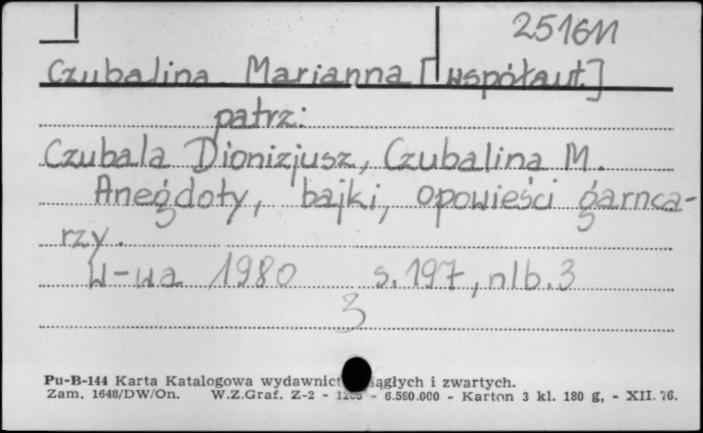 2516M
Czubalina Marianna [współaut.]
patrz:
Czubala Dionizjusz, Czubalina M.
Anegdoty, bajki, opowieści garnca-
rzy.
W-wa 1980 s. 197, nlb. 3
3
Pu-B-144 Karta Katalogowa wydawnict ągłych i zwartych.
Zam. 1648/DW/On. W.Z.Graf. Z-2 - - 6.590.000 - Karton 3 kl. 180 g, - XII. 76.